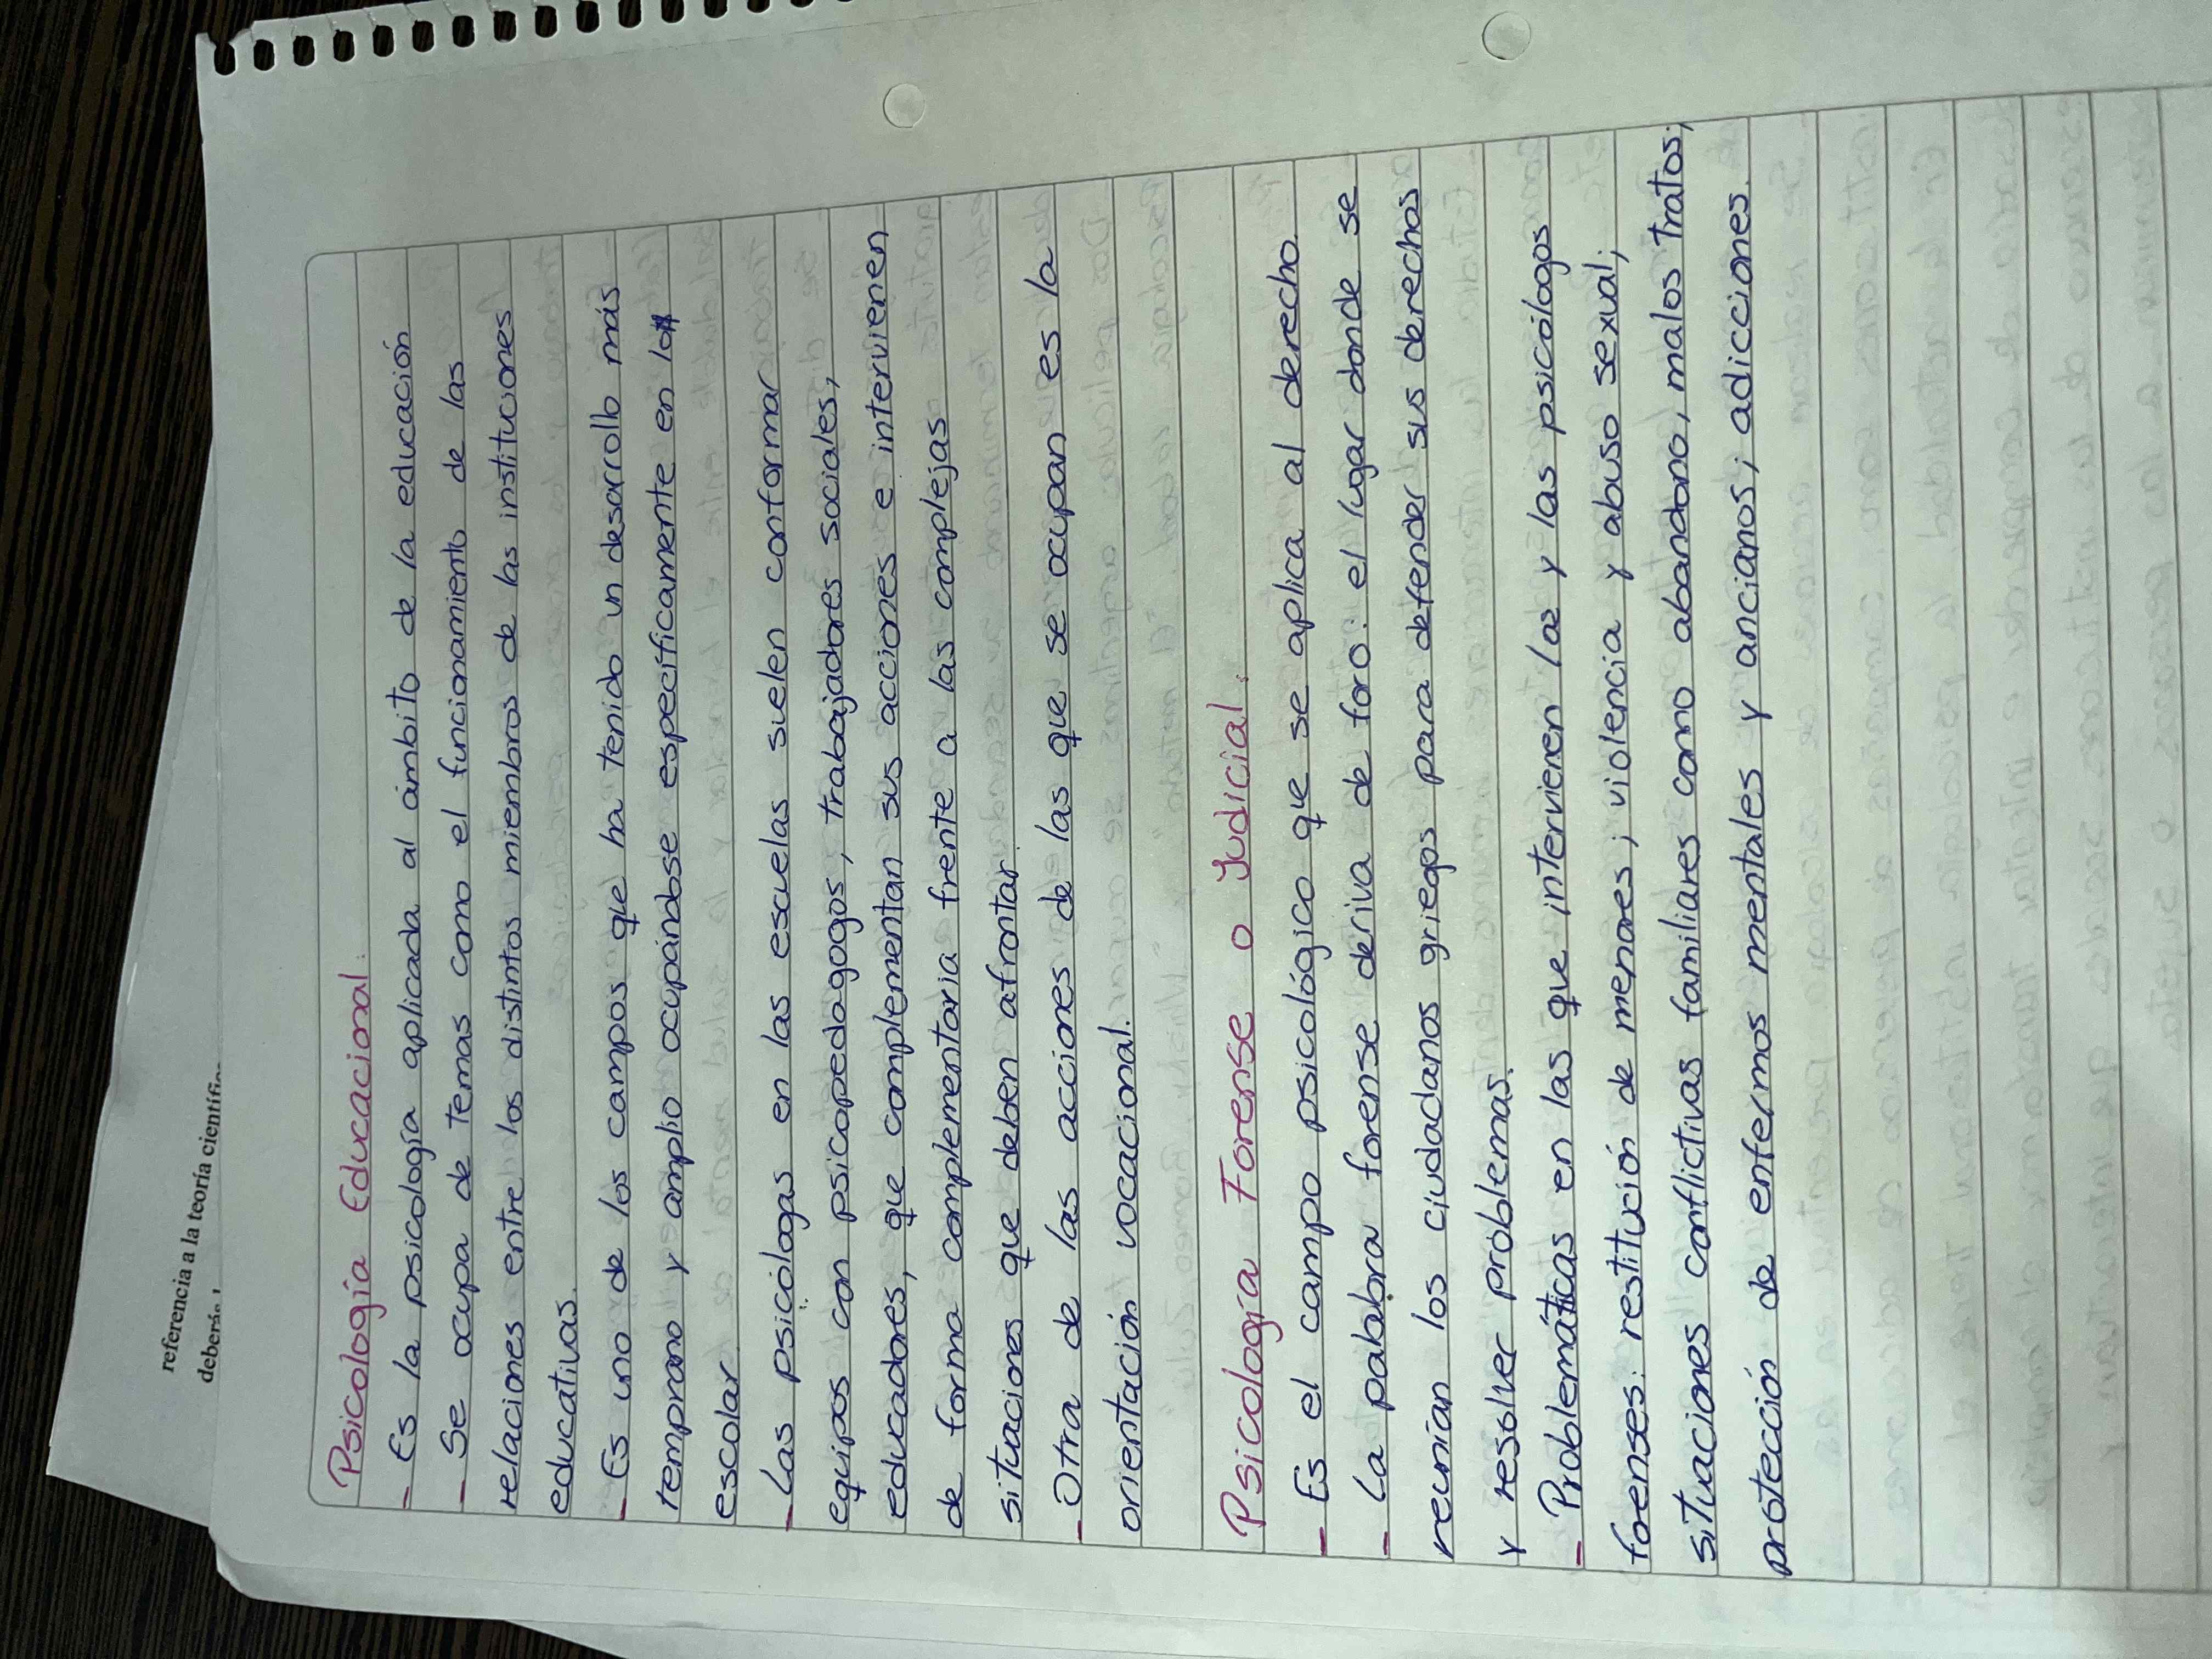 referencia a la teoría científica
Psicología Educacional:
- Es la psicología aplicada al ámbito de la educación
- Se ocupa de temas como el funcionamiento de las
relaciones entre los distintos miembros de las instituciones
educativas.
- Es uno de los campos que ha tenido un desarrollo más
temprano y amplio ocupándose específicamente en lo
escolar.
- Las psicólogas en las escuelas suelen conformar
equipos con psicopedagogos, trabajadores sociales,
educadores, que complementan sus acciones e intervienen
de forma complementaria frente a las complejas
situaciones que deben afrontar.
- Otra de las acciones de las que se ocupan es la
orientación vocacional.
Psicología Forense o Judicial:
- Es el campo psicológico que se aplica al derecho.
- La palabra forense deriva de foro: el lugar donde se
reunían los ciudadanos griegos para defender sus derechos
y resolver problemas.
- Problemáticas en las que intervienen las y las psicólogos
forenses: restitución de menores; violencia y abuso sexual;
situaciones conflictivas familiares como abandono, malos tratos;
protección de enfermos mentales y ancianos; adicciones.